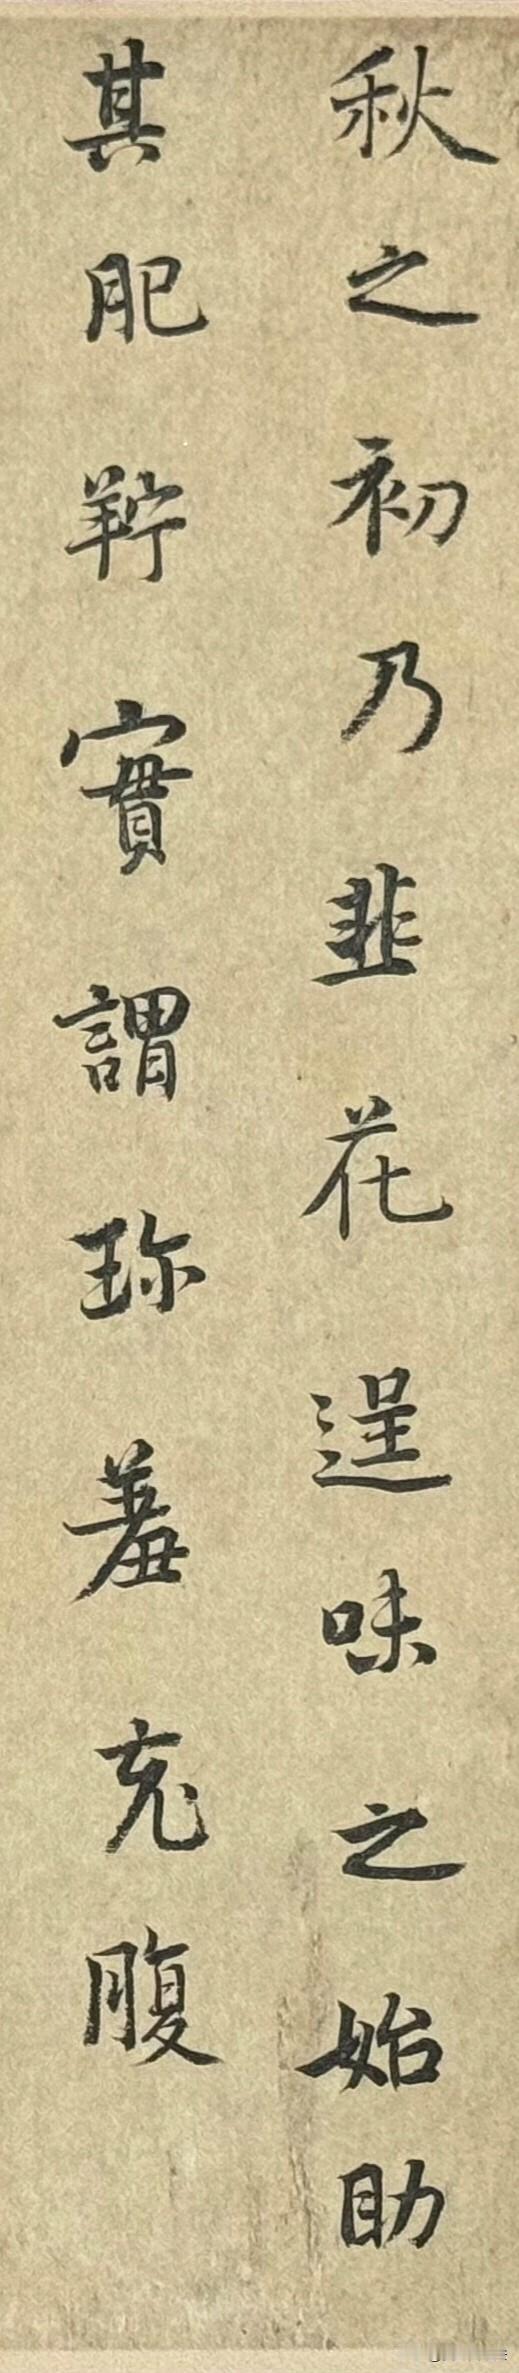 秋之初乃韭花逞味之始助
其肥羜實謂珍羞充腹